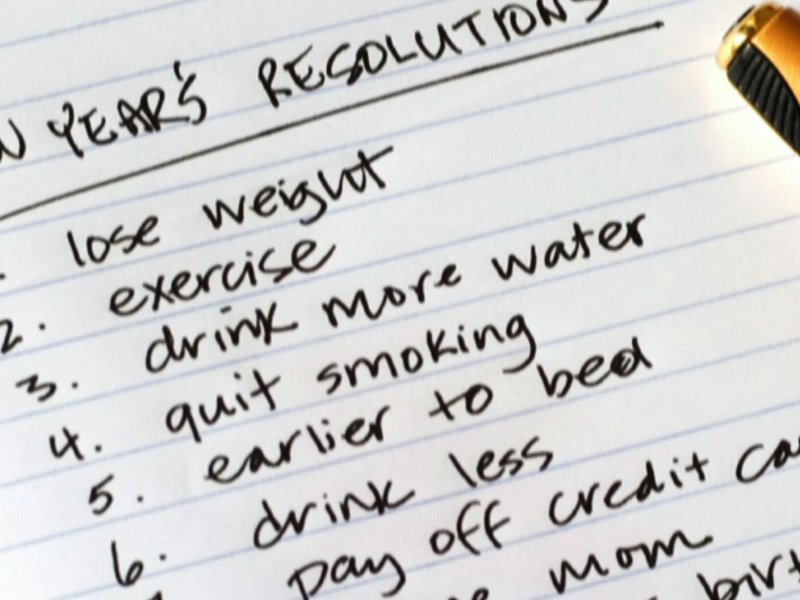 W YEAR'S RESOLUTIONS
lose weight
2. exercise
3. drink more water
4. quit smoking
5. earlier to bed
6. drink less
pay off credit
mom